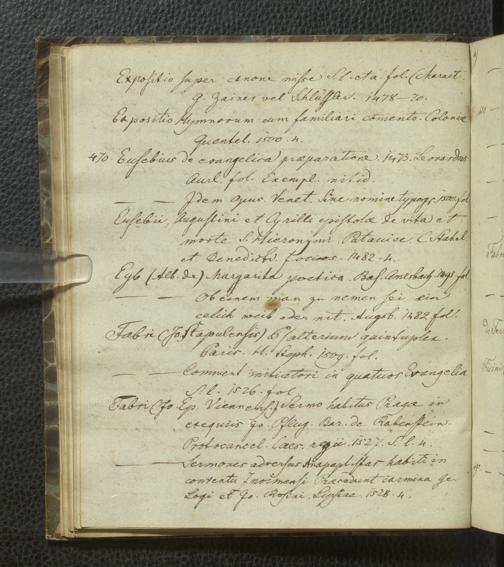 Expositio super canone misse S. l. et a. fol. (charact.
G. Zainer vel Schüssler. 1478-70.
Expositio Hymnorum cum familiari comento. Coloniæ
Quentel. 1500. 4.
470. Eusebius de evangelica præparatione. 1473. Leonardus
Aurl. fol. Exempl. nitid.
— — Idem opus Venet. sine nomine typogr. 1500. fol
Eusebii, Augustini et Cyrilli epistolæ de vita et
morte S. Hieronymi. Patavise. C. Stahel
et Benedicti. socios. 1482. 4.
Eyb (Alb. de) Margarita poetica. Bas. Amerbach 1495. fol
— — Ob einem man zu nemen sei ein
eelich weib oder nit. Augsb. 1482. fol.
Fabri (Jo. Stapulensis) Psalterium quintuplex.
Paris. H. Steph. 1509. fol.
— — Comment. initiatori in quatuor Evangelia
S. l. 1526. fol.
Fabri (Jo. Ep. Viennens.) Sermo habitus Pragæ in
exequiis Jo. Pflug. Bar. de Rabenstein
Protocancel. Caes. regii. 1527. S. l. 4.
— — Sermones adversus Anapaptistas habiti in
conventu Znoimensi. Præcedent carmina Ge.
Logi et Jo. Rosini. Lipsiae. 1528. 4.